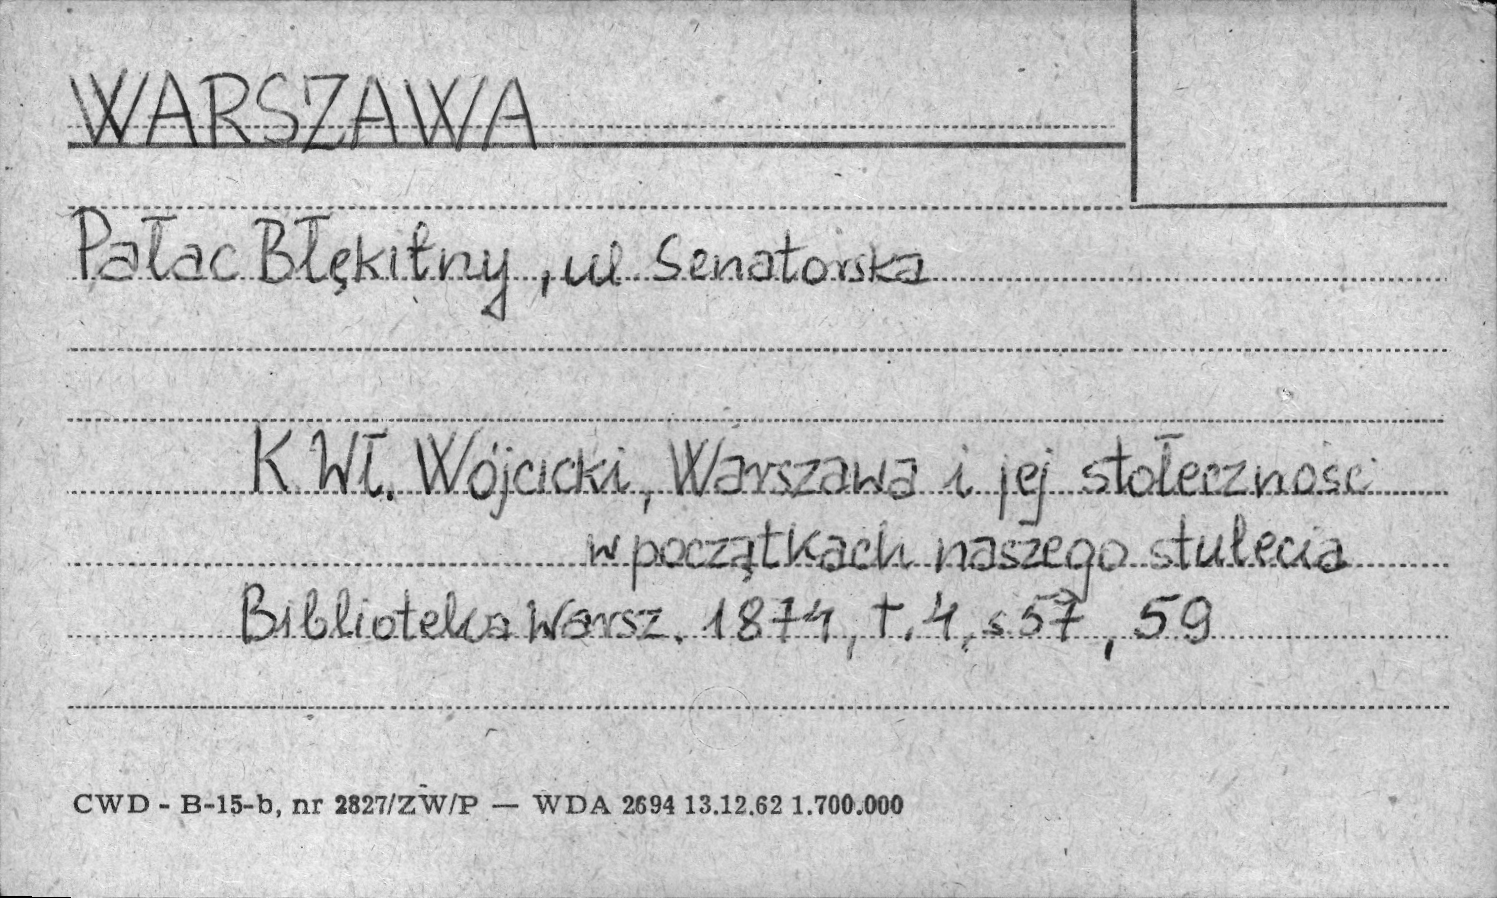 WARSZAWA
Pałac Błękitny, ul Senatorska
K Wł. Wójcicki, Warszawa i jej stołeczność
w początkach naszego stulecia
Biblioteka Warsz. 1874, t. 4, s 57, 59
CWD - B-15-b, nr 2827/ZW/P — WDA 2694 13.12.62 1.700.000